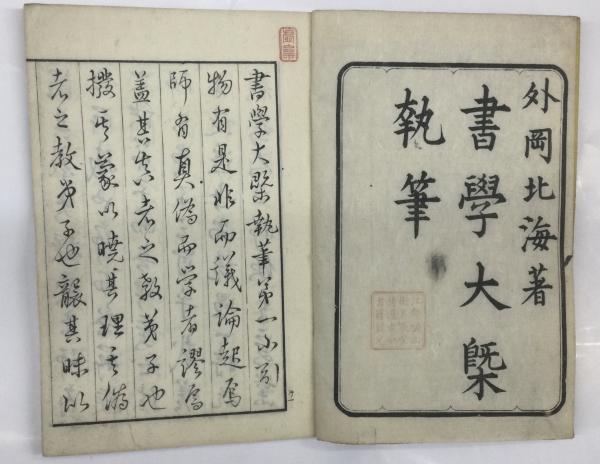 外岡北海著
書學大槩
執筆
書學大槩執筆第一小引
物有是非而議論起焉
師有真偽而学者謬焉
蓋其真者之教弟子也
撥其蒙以曉其理其偽
者之教弟子也襲其昧以